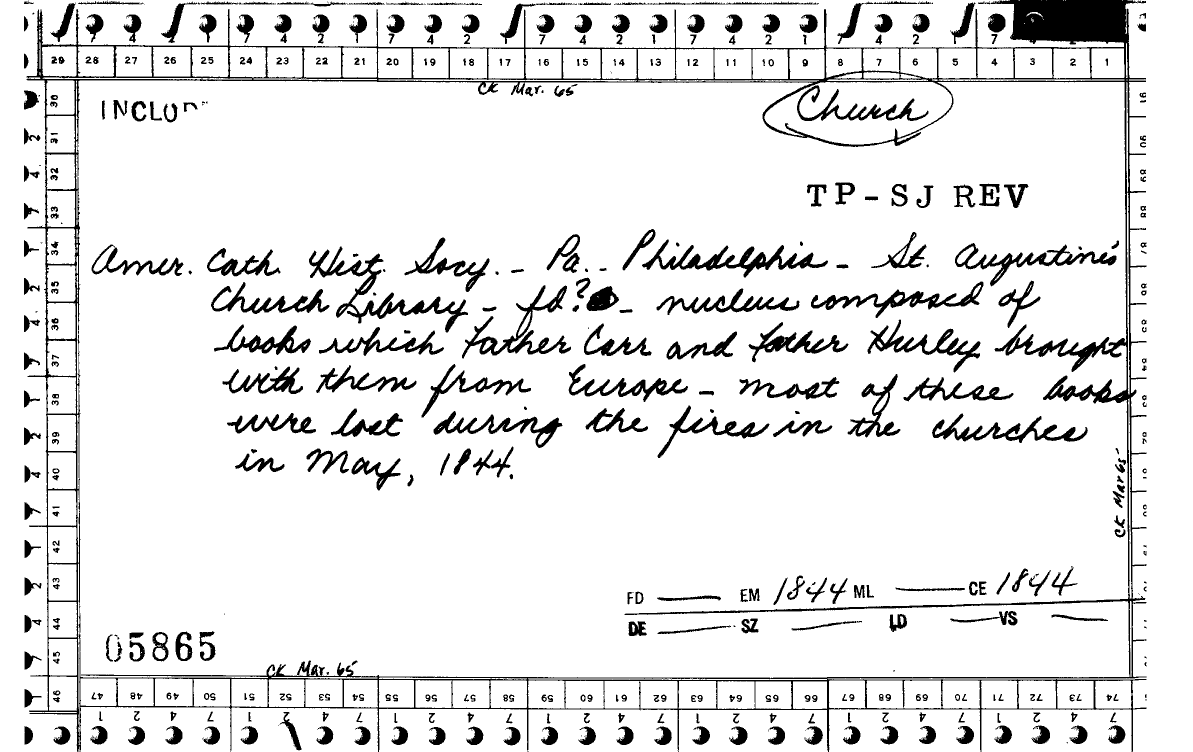 7 4 2 1 7 4 2 1 7 4 2 1 7 4 2 1 7 4 2 1 7 4 2 1 7 4 2 1
29 28 27 26 25 24 23 22 21 20 19 18 17 16 15 14 13 12 11 10 9 8 7 6 5 4 3 2 1
CK Mar. 65
INCLUD
Church
TP-SJ REV
Amer. Cath. Hist. Socy. - Pa. - Philadelphia - St. Augustine's
Church Library - fd? - nucleus composed of
books which Father Carr and Father Hurley brought
with them from Europe - most of these books
were lost during the fires in the churches
in May, 1844.
CK Mar 65
FD — EM 1844 ML — CE 1844
DE — SZ — LD — VS —
05865
CK Mar. 65
47 48 49 50 51 52 53 54 55 56 57 58 59 60 61 62 63 64 65 66 67 68 69 70 71 72 73 74